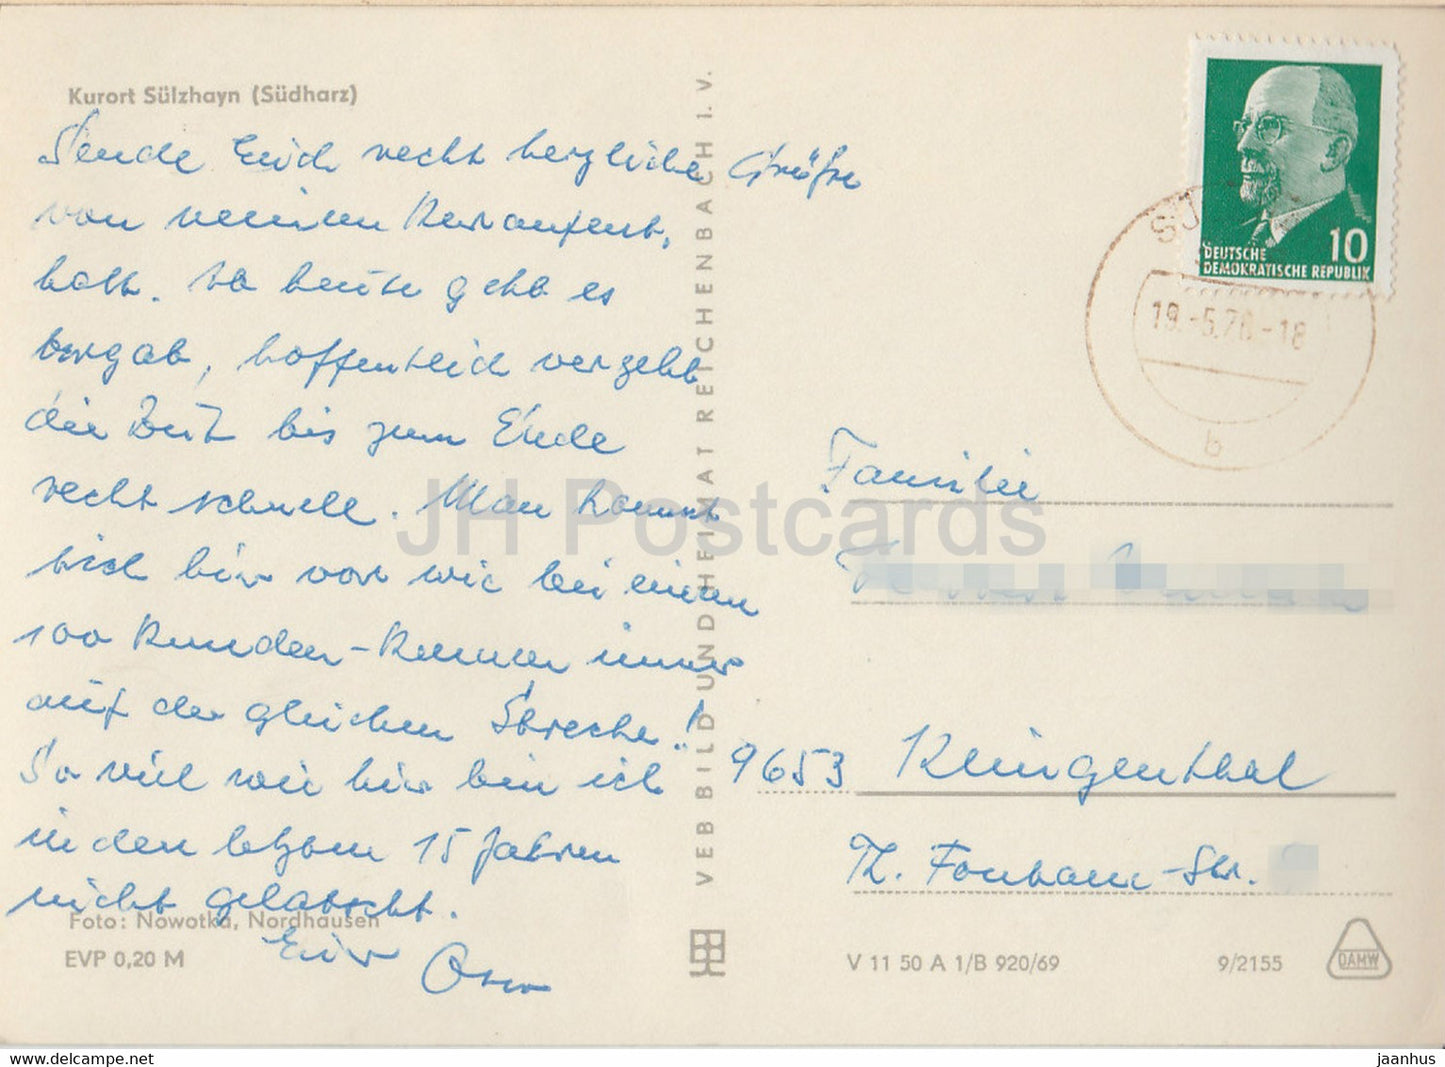 Kurort Sülzhayn (Südharz)
Sende Euch recht herzliche Grüße
von meinem Kuraufent,
halt. Ab heute geht es
bergab, hoffentlich vergeht
die Zeit bis zum Ende
recht schnell. Man kommt
sich hier vor wie bei einem
100 Runden-Rennen immer
auf der gleichen Strecke!
So viel wie hier bin ich
in den letzten 15 Jahren
nicht gelatscht.
Euer
Foto: Nowotka, Nordhausen
EVP 0,20 M
VEB BILD UND HEIMAT REICHENBACH I. V.
DEUTSCHE
DEMOKRATISCHE REPUBLIK
10
19.-5.70-18
b
Familie
9653 Klingenthal
Th. Fontane-Str.
V 11 50 A 1/B 920/69
9/2155
DAMW
JH Postcards
www.delcampe.net
jaanhus